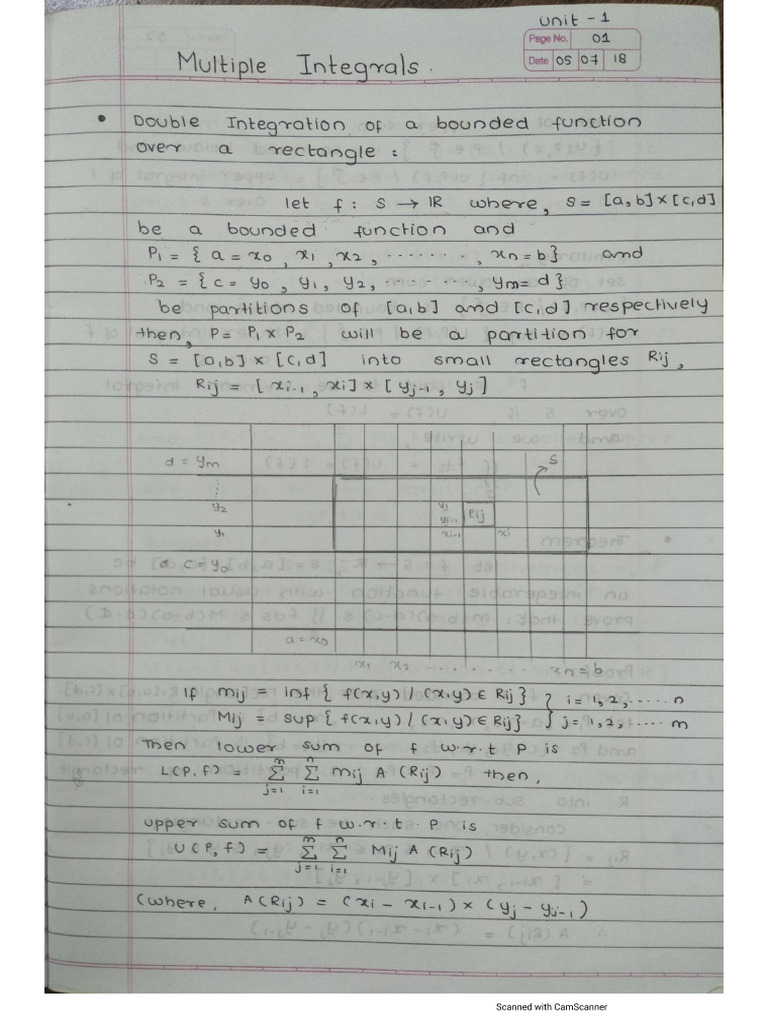 Unit - 1
Page No. 01
Date 05 07 18
Multiple Integrals.
• Double Integration of a bounded function
over a rectangle :
let f : S → IR where, S = [a,b]×[c,d]
be a bounded function and
P1 = { a = x0 , x1 , x2 , ........ , xn = b} and
P2 = { c = y0 , y1 , y2 , ........ , ym = d}
be partitions of [a,b] and [c,d] respectively
then, P = P1 × P2 will be a partition for
S = [a,b] × [c,d] into small rectangles Rij ,
Rij = [ xi-1 , xi] × [ yj-1 , yj ]
d = ym
S
y2
yj
yj-1
Rij
y1
xi-1
xi
c = y0
a = x0
x1 x2 ........ xn = b
If mij = inf { f(x,y) / (x,y) ∈ Rij} } i = 1, 2, ..... n
Mij = sup { f(x,y) / (x,y) ∈ Rij} } j = 1, 2, .... m
Then lower sum of f w.r.t P is
L(P, f) = m∑j=1 n∑i=1 mij A (Rij) then,
upper sum of f w.r.t. P is
U(P, f) = m∑j=1 n∑i=1 Mij A (Rij)
(where, A(Rij) = (xi - xi-1) × (yj - yj-1)
Scanned with CamScanner